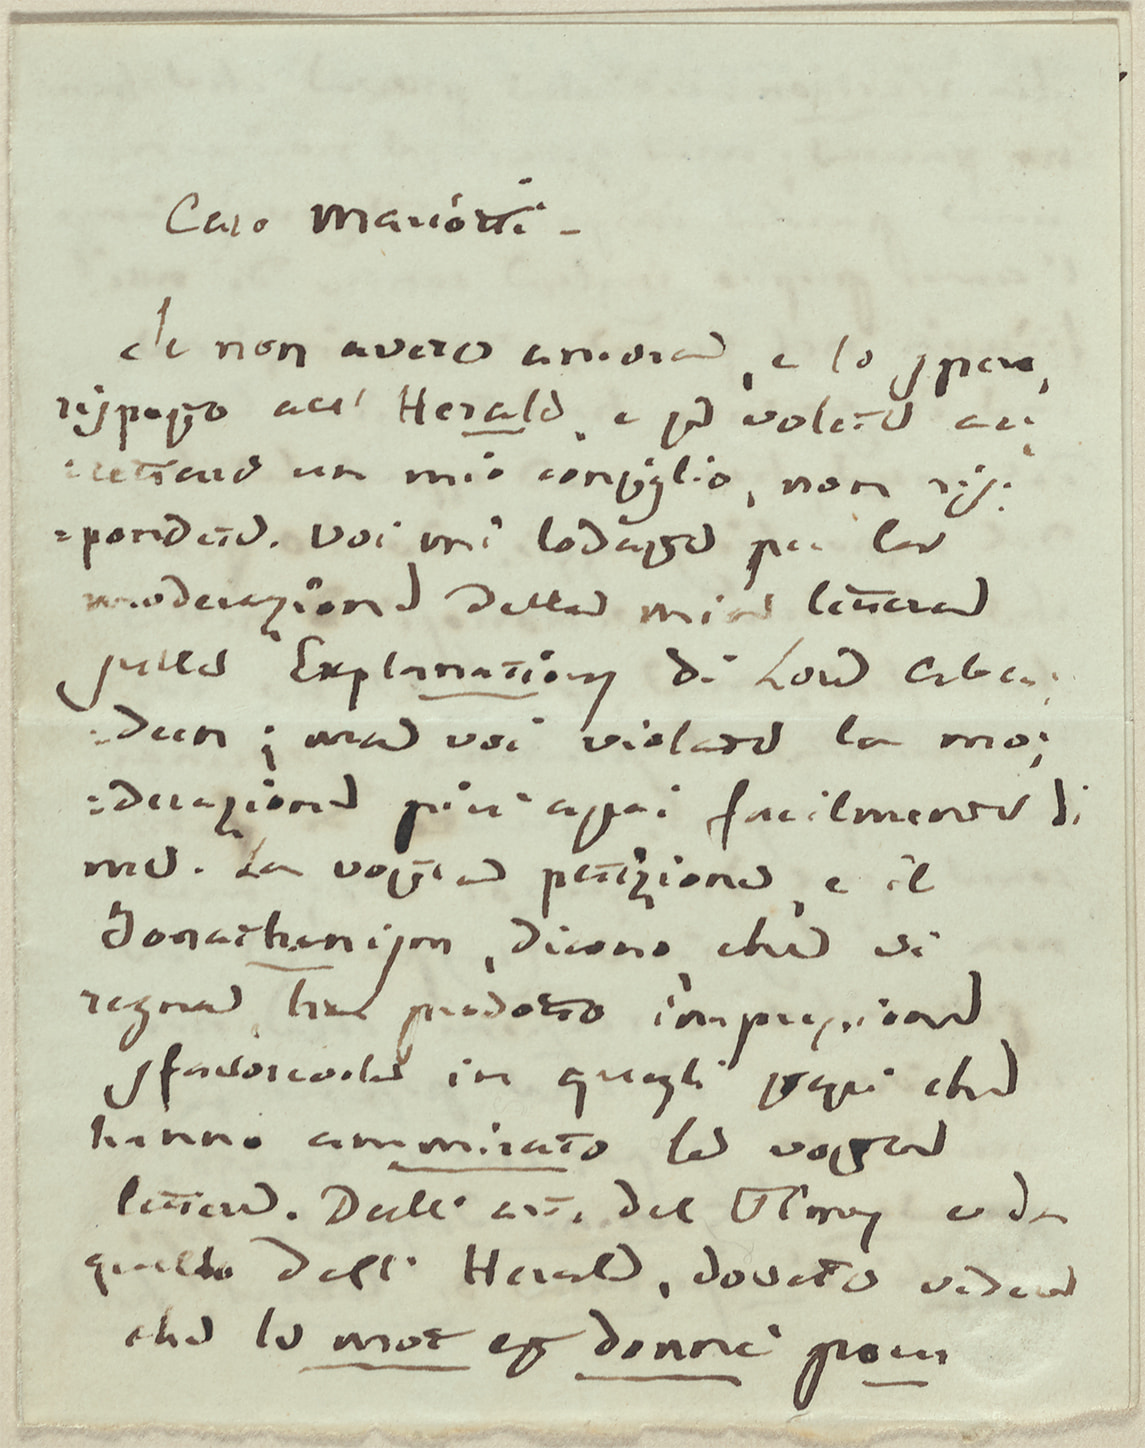 Caro Mariotti -
Se non avete ancora, e lo spero,
risposto all' Herald, e se volete ac:
:cettare un mio consiglio, non ris:
:pondete. Voi mi lodaste per la
moderazione della mia lettera
sulle Explanations di Lord Aber:
:deen; ma voi violaste la mo:
:derazione più assai facilmente di
me. La vostra petizione, e il
Jonathanism, dicono, che vi
regna, ha prodotto impressione
sfavorevole in quegli stessi che
hanno ammirato le vostre
lettere. Dall' art. del Times e da
quello dell' Herald, dovete vedere
che le mot est donné pour